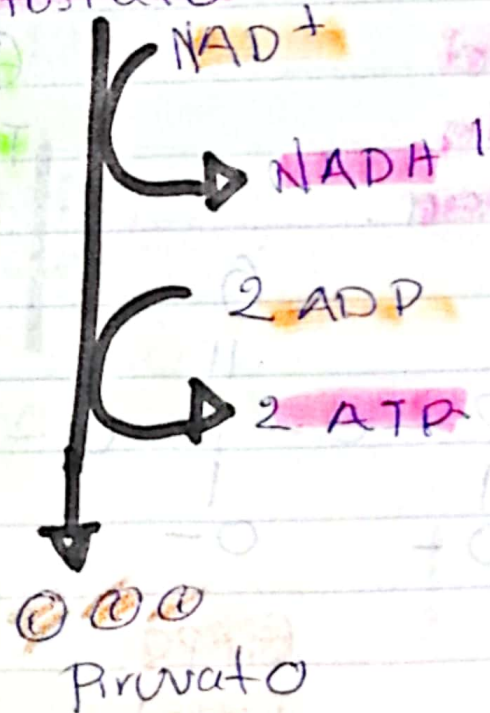 NAD+
NADH
2 ADP
2 ATP
C C C
Piruvato